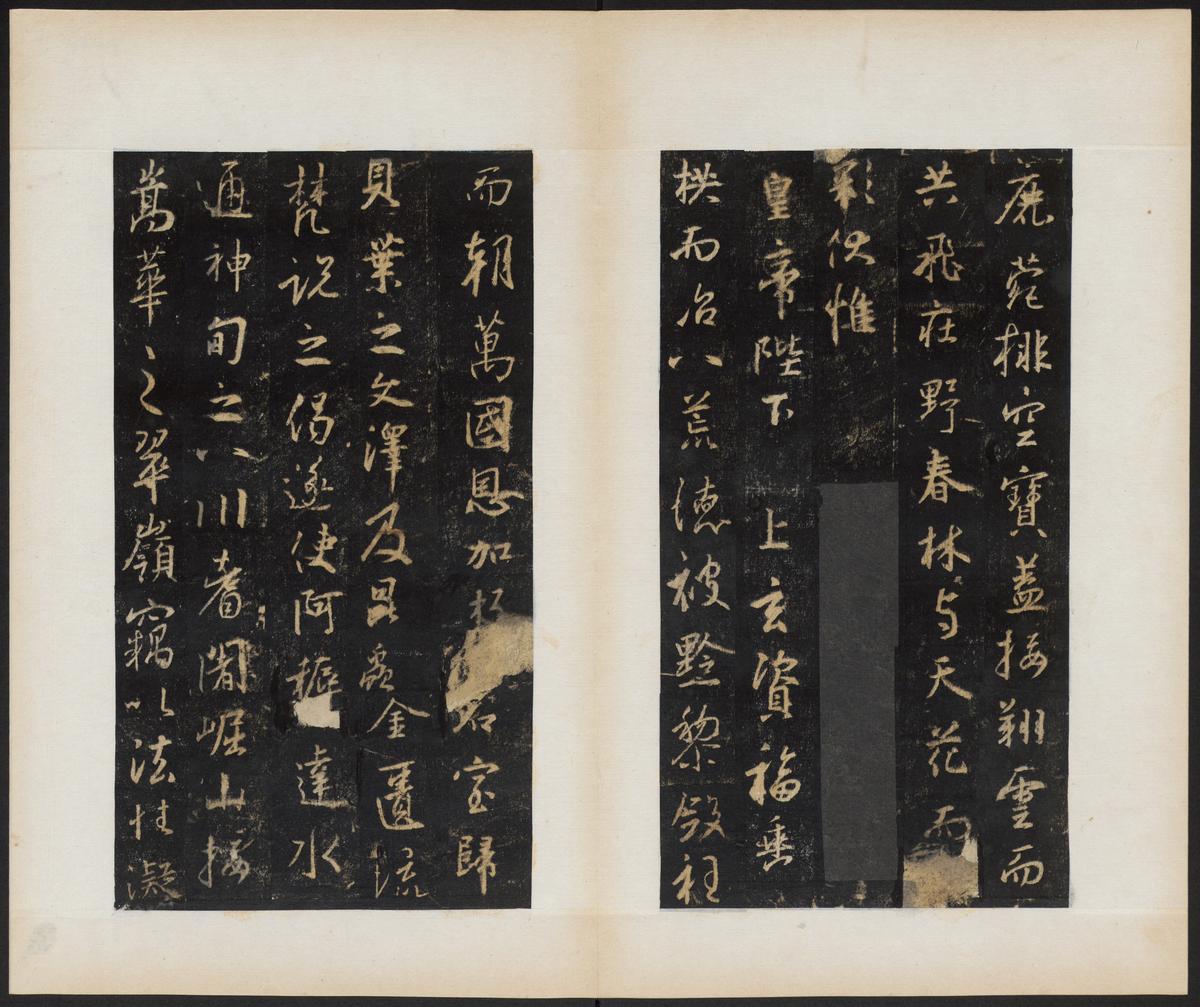 鹿菀排空寶蓋接翔雲而
共飛莊野春林与天花而
彩伏惟
皇帝陛下上玄資福垂
拱而治八荒德被黔黎斂衽
而朝萬國恩加朽石室歸
貝葉之文澤及昆蟲金匱流
梵説之偈遂使阿耨達水
通神甸之八川耆闍崛山接
嵩華之翠嶺竊以法性凝